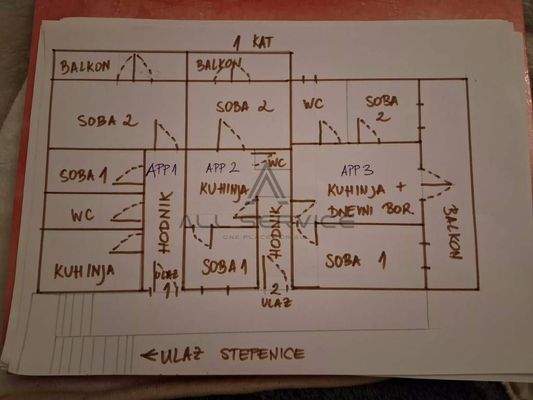 1 KAT
BALKON
BALKON
SOBA 2
SOBA 2
WC
SOBA
2
SOBA 1
APP 1
APP 2
KUHINJA
WC
APP 3
KUHINJA +
DNEVNI BOR.
WC
HODNIK
HODNIK
BALKON
ALL SERVICE
KUHINJA
ULAZ
1
SOBA 1
2
ULAZ
SOBA 1
ULAZ STEPENICE